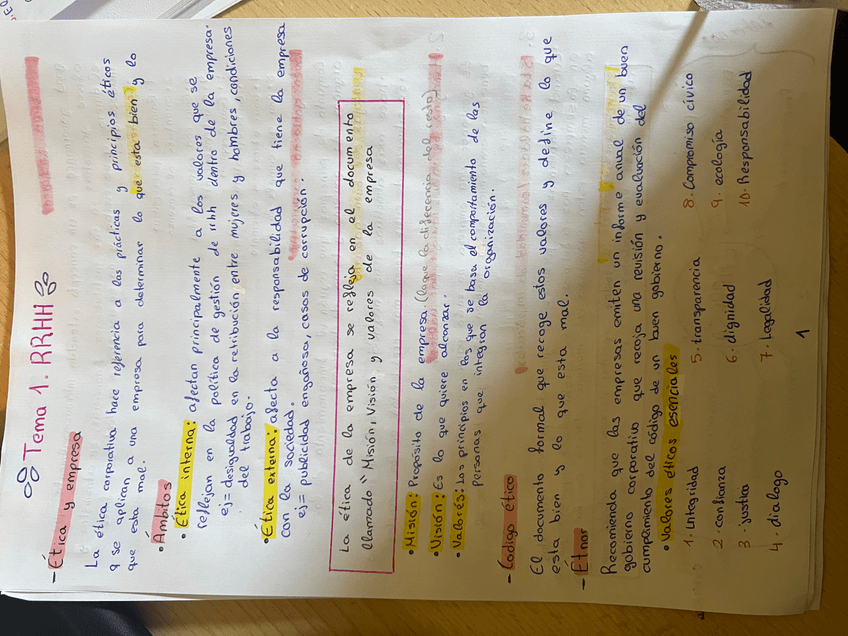 Tema 1. RRHH
- Ética y empresa
La ética corporativa hace referencia a las prácticas y principios éticos
q se aplican a una empresa para determinar lo que esta bien y lo
que esta mal.
• Ámbitos
• Ética interna: afectan principalmente a los valores que se
reflejan en la política de gestión de rrhh dentro de la empresa.
ej= desigualdad en la retribución entre mujeres y hombres, condiciones
del trabajo.
• Ética externa: afecta a la responsabilidad que tiene la empresa
con la sociedad.
ej= publicidad engañosa, casos de corrupción.
La ética de la empresa se refleja en el documento
llamado "Misión, Visión y valores de la empresa
• Misión: Propósito de la empresa (lo que la diferencia del resto)
• Visión: Es lo que quiere alcanzar.
• Valores: Los principios en los que se basa el comportamiento de las
personas que integran la organización.
- Codigo ético
El documento formal que recoge estos valores y define lo que
esta bien y lo que esta mal.
- Etnor
Recomienda que las empresas emiten un informe anual de un buen
gobierno corporativo que recoja una revisión y evaluación del
cumplimiento del código de un buen gobierno.
• Valores éticos esenciales
1. Integridad
2. confianza
3. justicia
4. dialogo
5. transparencia
6. dignidad
7. Legalidad
8. Compromiso cívico
9. ecología
10. Responsabilidad
1